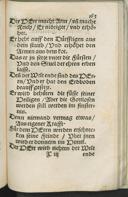 163
Der HErr macht Arm / uñ macht
Reich / Er nidriget / und erhö-
het.
Er hebt auff den Dürfftigen aus
dem staub / Und erhöhet den
Armen aus dem Kot.
Das er jn setze unter die Fürsten /
Und den Stuel der ehren erben
lasse.
Deñ der Welt ende sind des HEr-
rn / Und er hat den Erdboden
drauff gesetzt.
Er wird behüten die füsse seiner
Heiligen / Aber die Gottlosen
werden still werden im finster-
nis.
Denn niemand vermag etwas /
Aus eigener krafft.
Für dem HErrn werden erschrec-
ken seine feinde / Uber jnen
wird er donnern im Himel.
Der HErr wird richten der Welt
ende